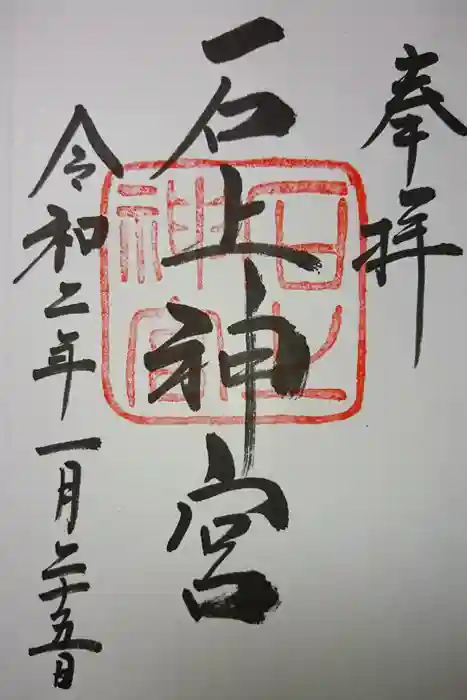 奉拝
石上神宮
石上神宮
令和二年一月二十五日